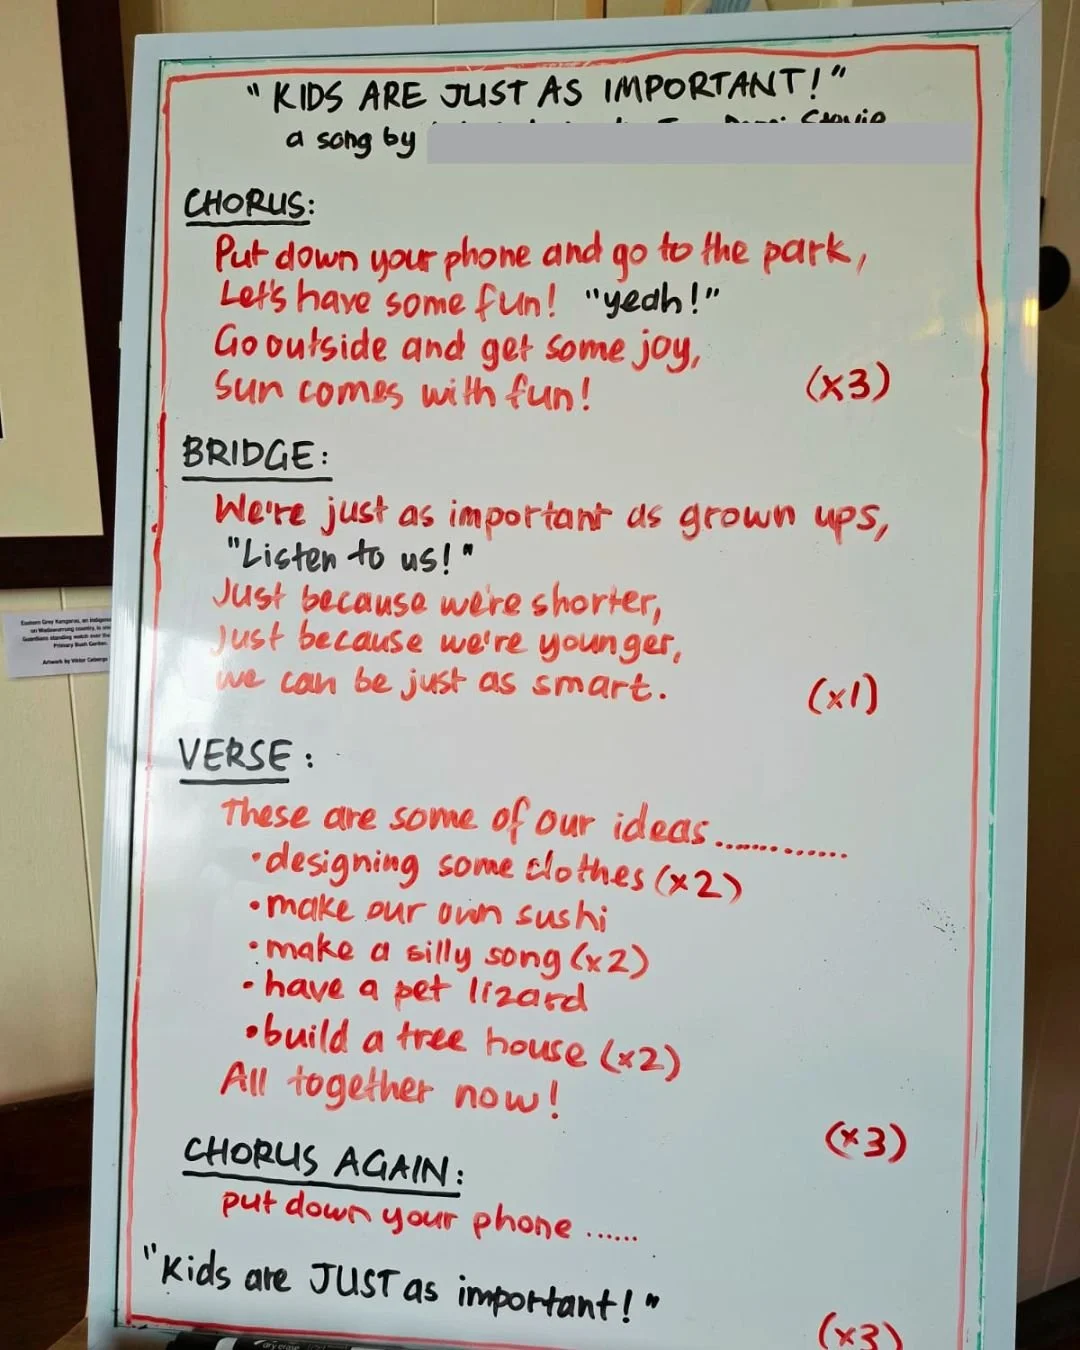 "KIDS ARE JUST AS IMPORTANT!"
a song by
CHORUS:
Put down your phone and go to the park,
Let's have some fun! "yeah!"
Go outside and get some joy,
Sun comes with fun!
(x3)
BRIDGE:
We're just as important as grown ups,
"Listen to us!"
Just because we're shorter,
Just because we're younger,
we can be just as smart.
(x1)
VERSE:
These are some of our ideas.............
•designing some clothes (x2)
•make our own sushi
•make a silly song (x2)
•have a pet lizard
•build a tree house (x2)
All together now!
(x3)
CHORUS AGAIN:
put down your phone ......
"Kids are JUST as important!"
(x3)
Eastern Grey Kangaroo, an Indigeno
on Wadawurrung country, is one
Guardians standing watch over the
Primary Bush Garden.
Artwork by Viktor